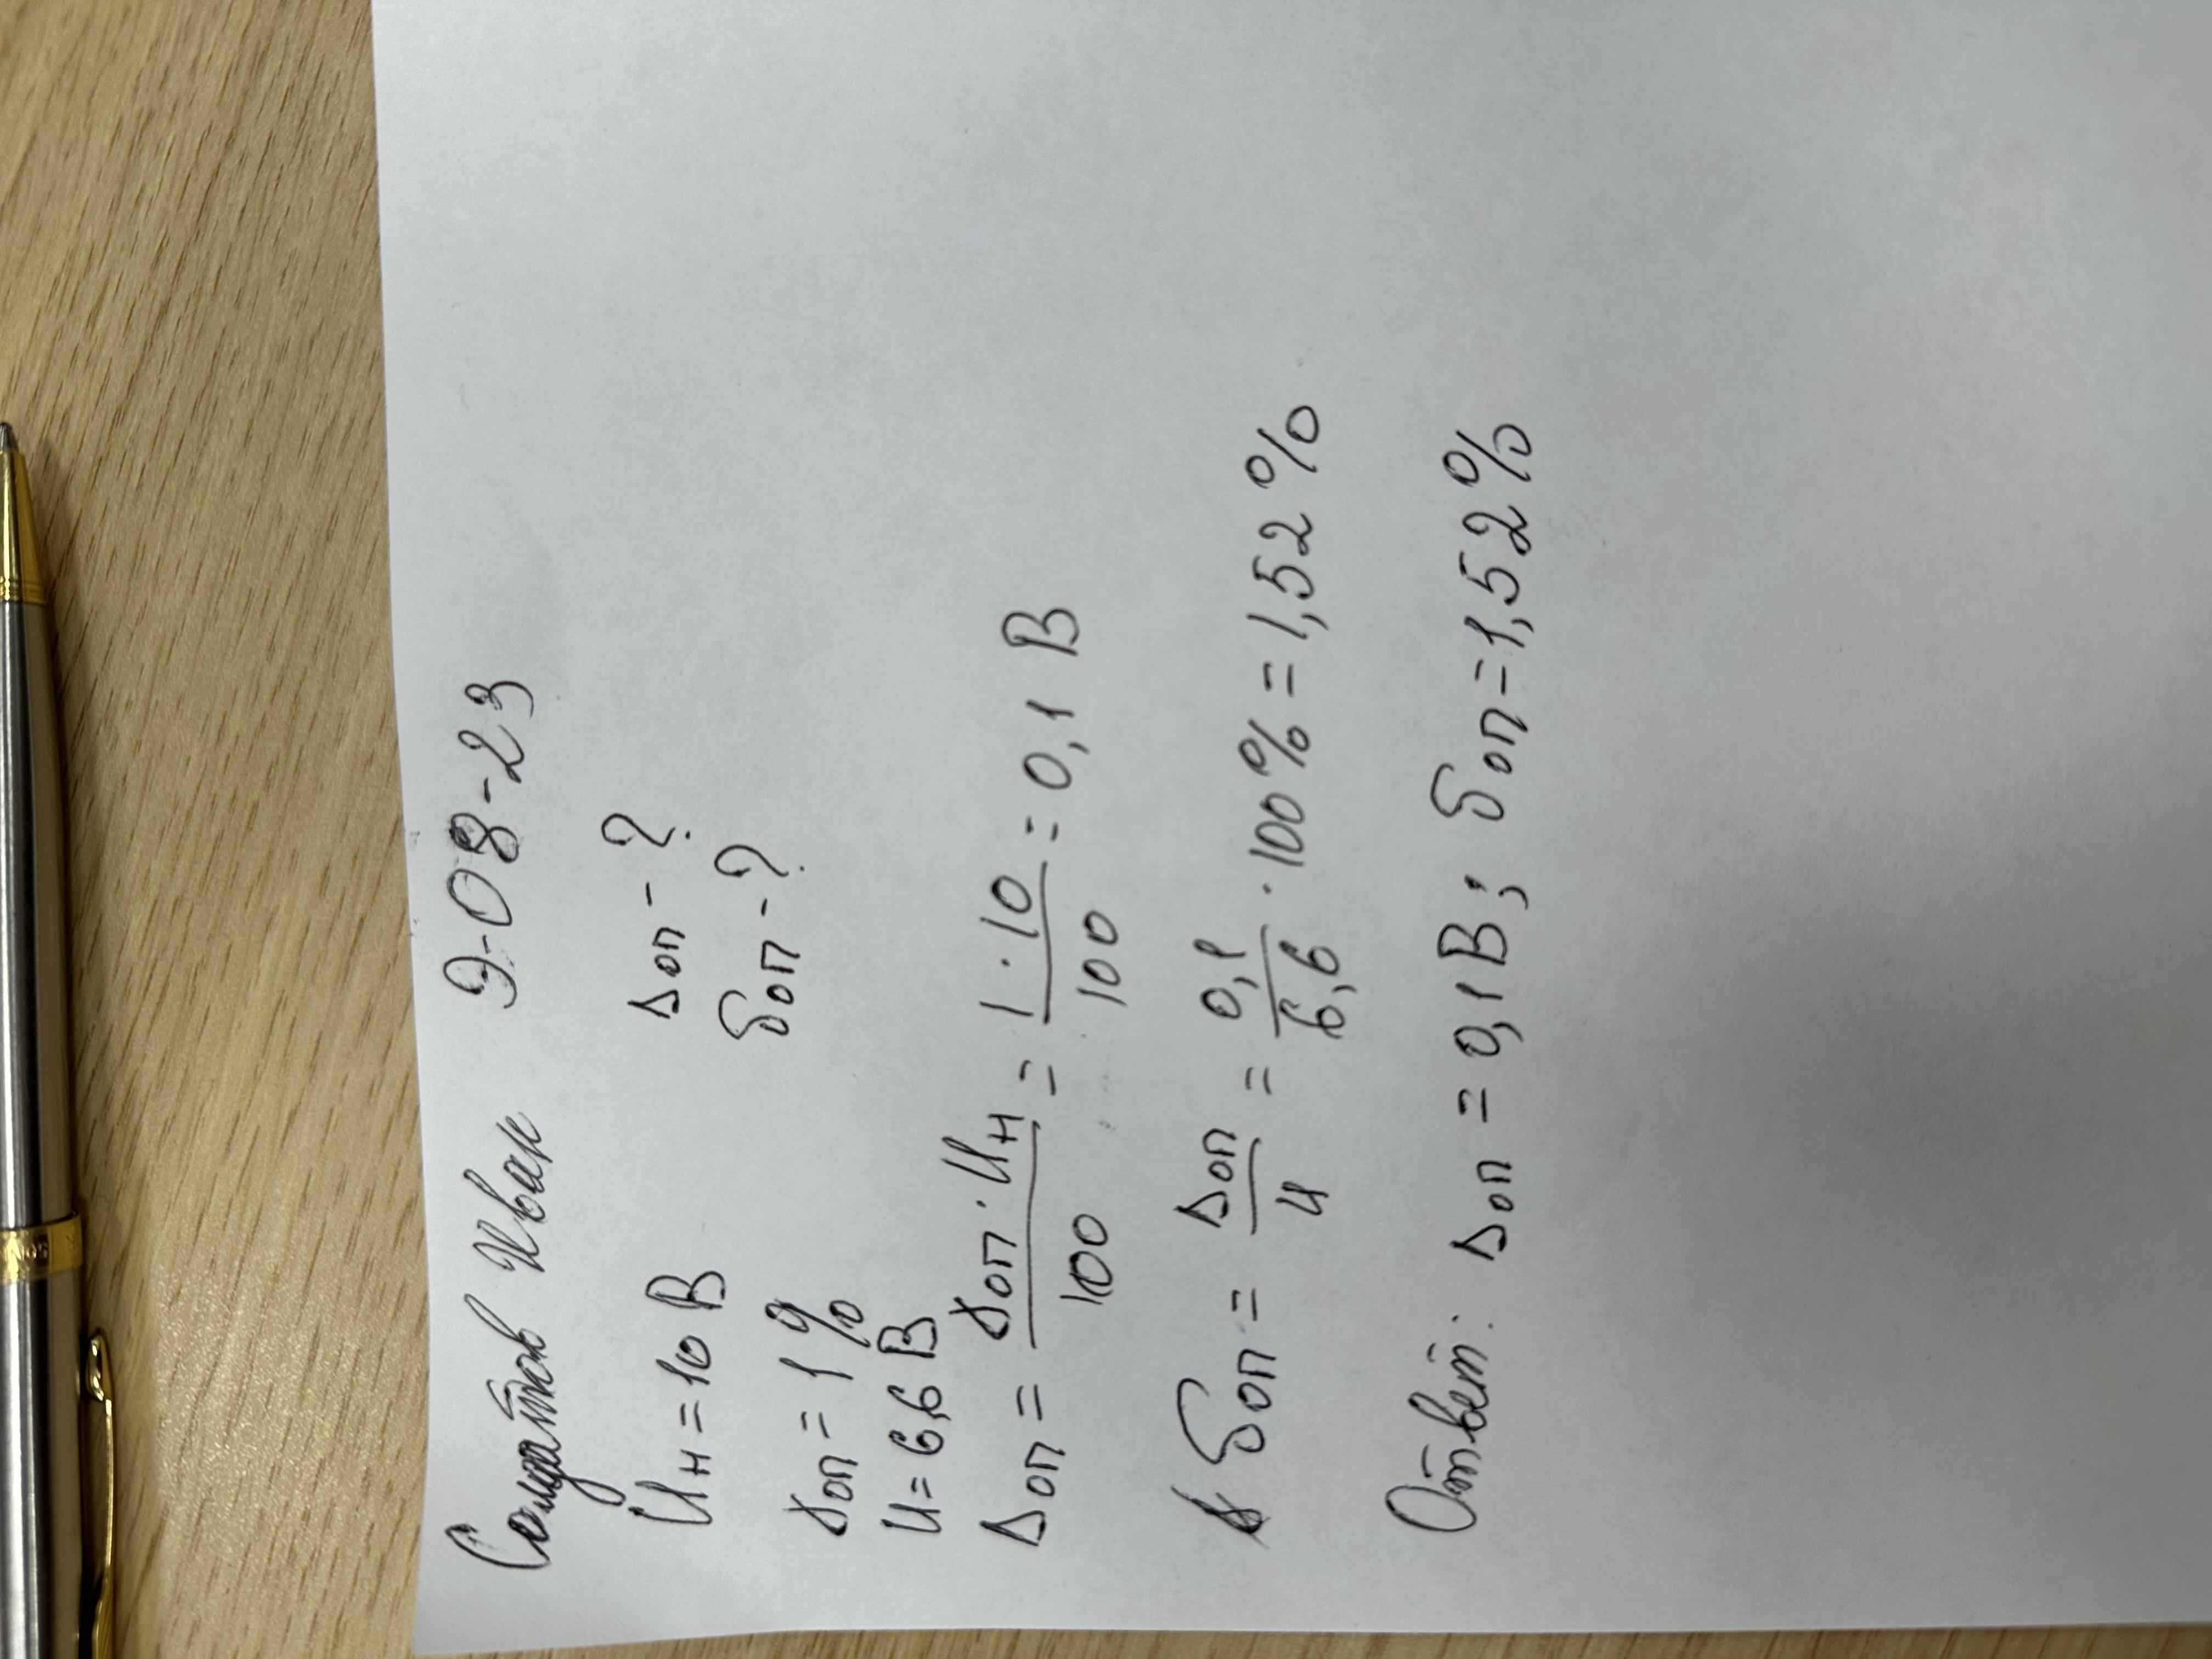 Солдатов Иван Э-08-23
Uн = 10 В Δоп - ?
γоп = 1 % δоп - ?
U = 6,6 В
Δоп = γоп · Uн / 100 = 1 · 10 / 100 = 0,1 В
δоп = Δоп / U = 0,1 / 6,6 · 100 % = 1,52 %
Ответ: Δоп = 0,1 В; δоп = 1,52 %